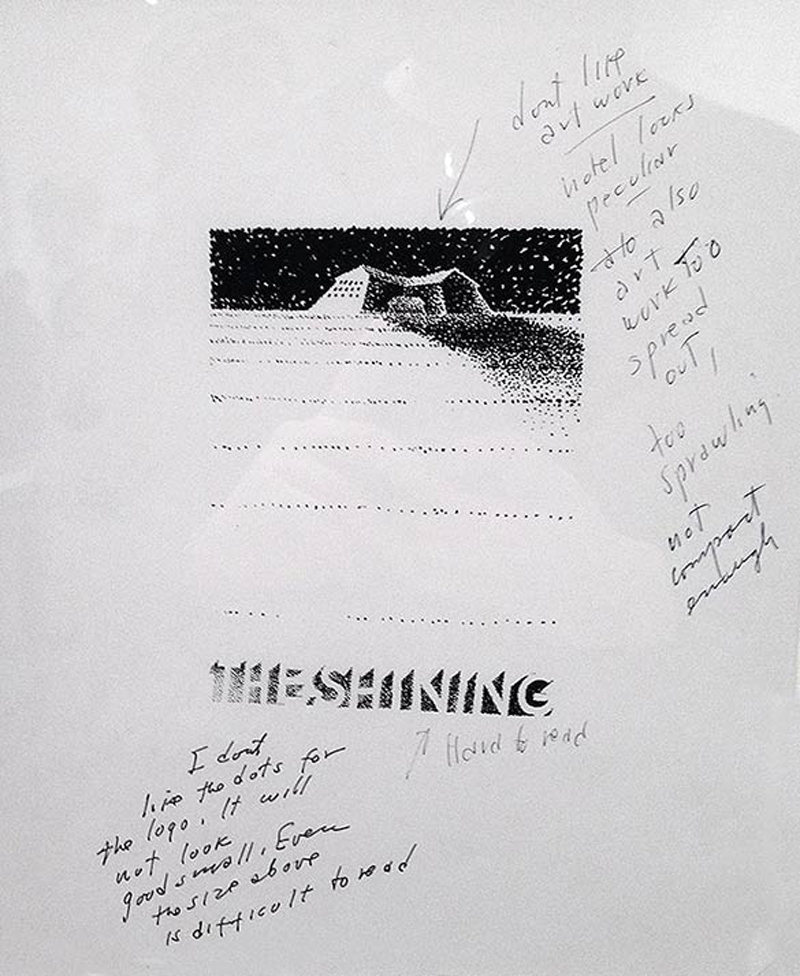 dont like
art work
hotel looks
peculiar
also
art
work too
spread
out,
too
sprawling.
not
compact
enough
THE SHINING
Hard to read
I dont
like the dots for
the logo. It will
not look
good small. Even
the size above
is difficult to read